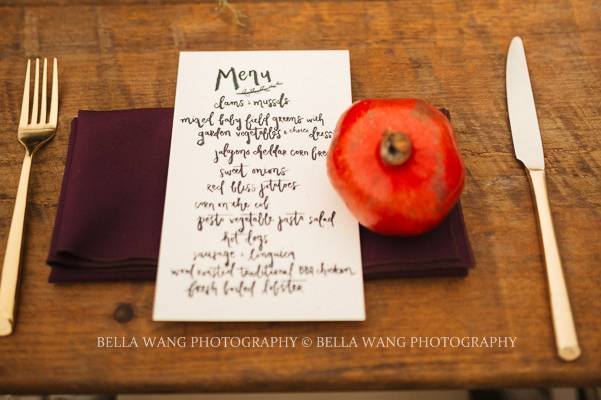 Menu
clams & mussels
mixed baby field greens with
garden vegetables & choice dress
jalapeno cheddar corn bre
sweet onions
red bliss potatoes
corn on the cob
pesto vegetable pasta salad
hot dogs
sausage & linguica
wood roasted traditional BBQ chicken
fresh boiled lobster
BELLA WANG PHOTOGRAPHY © BELLA WANG PHOTOGRAPHY